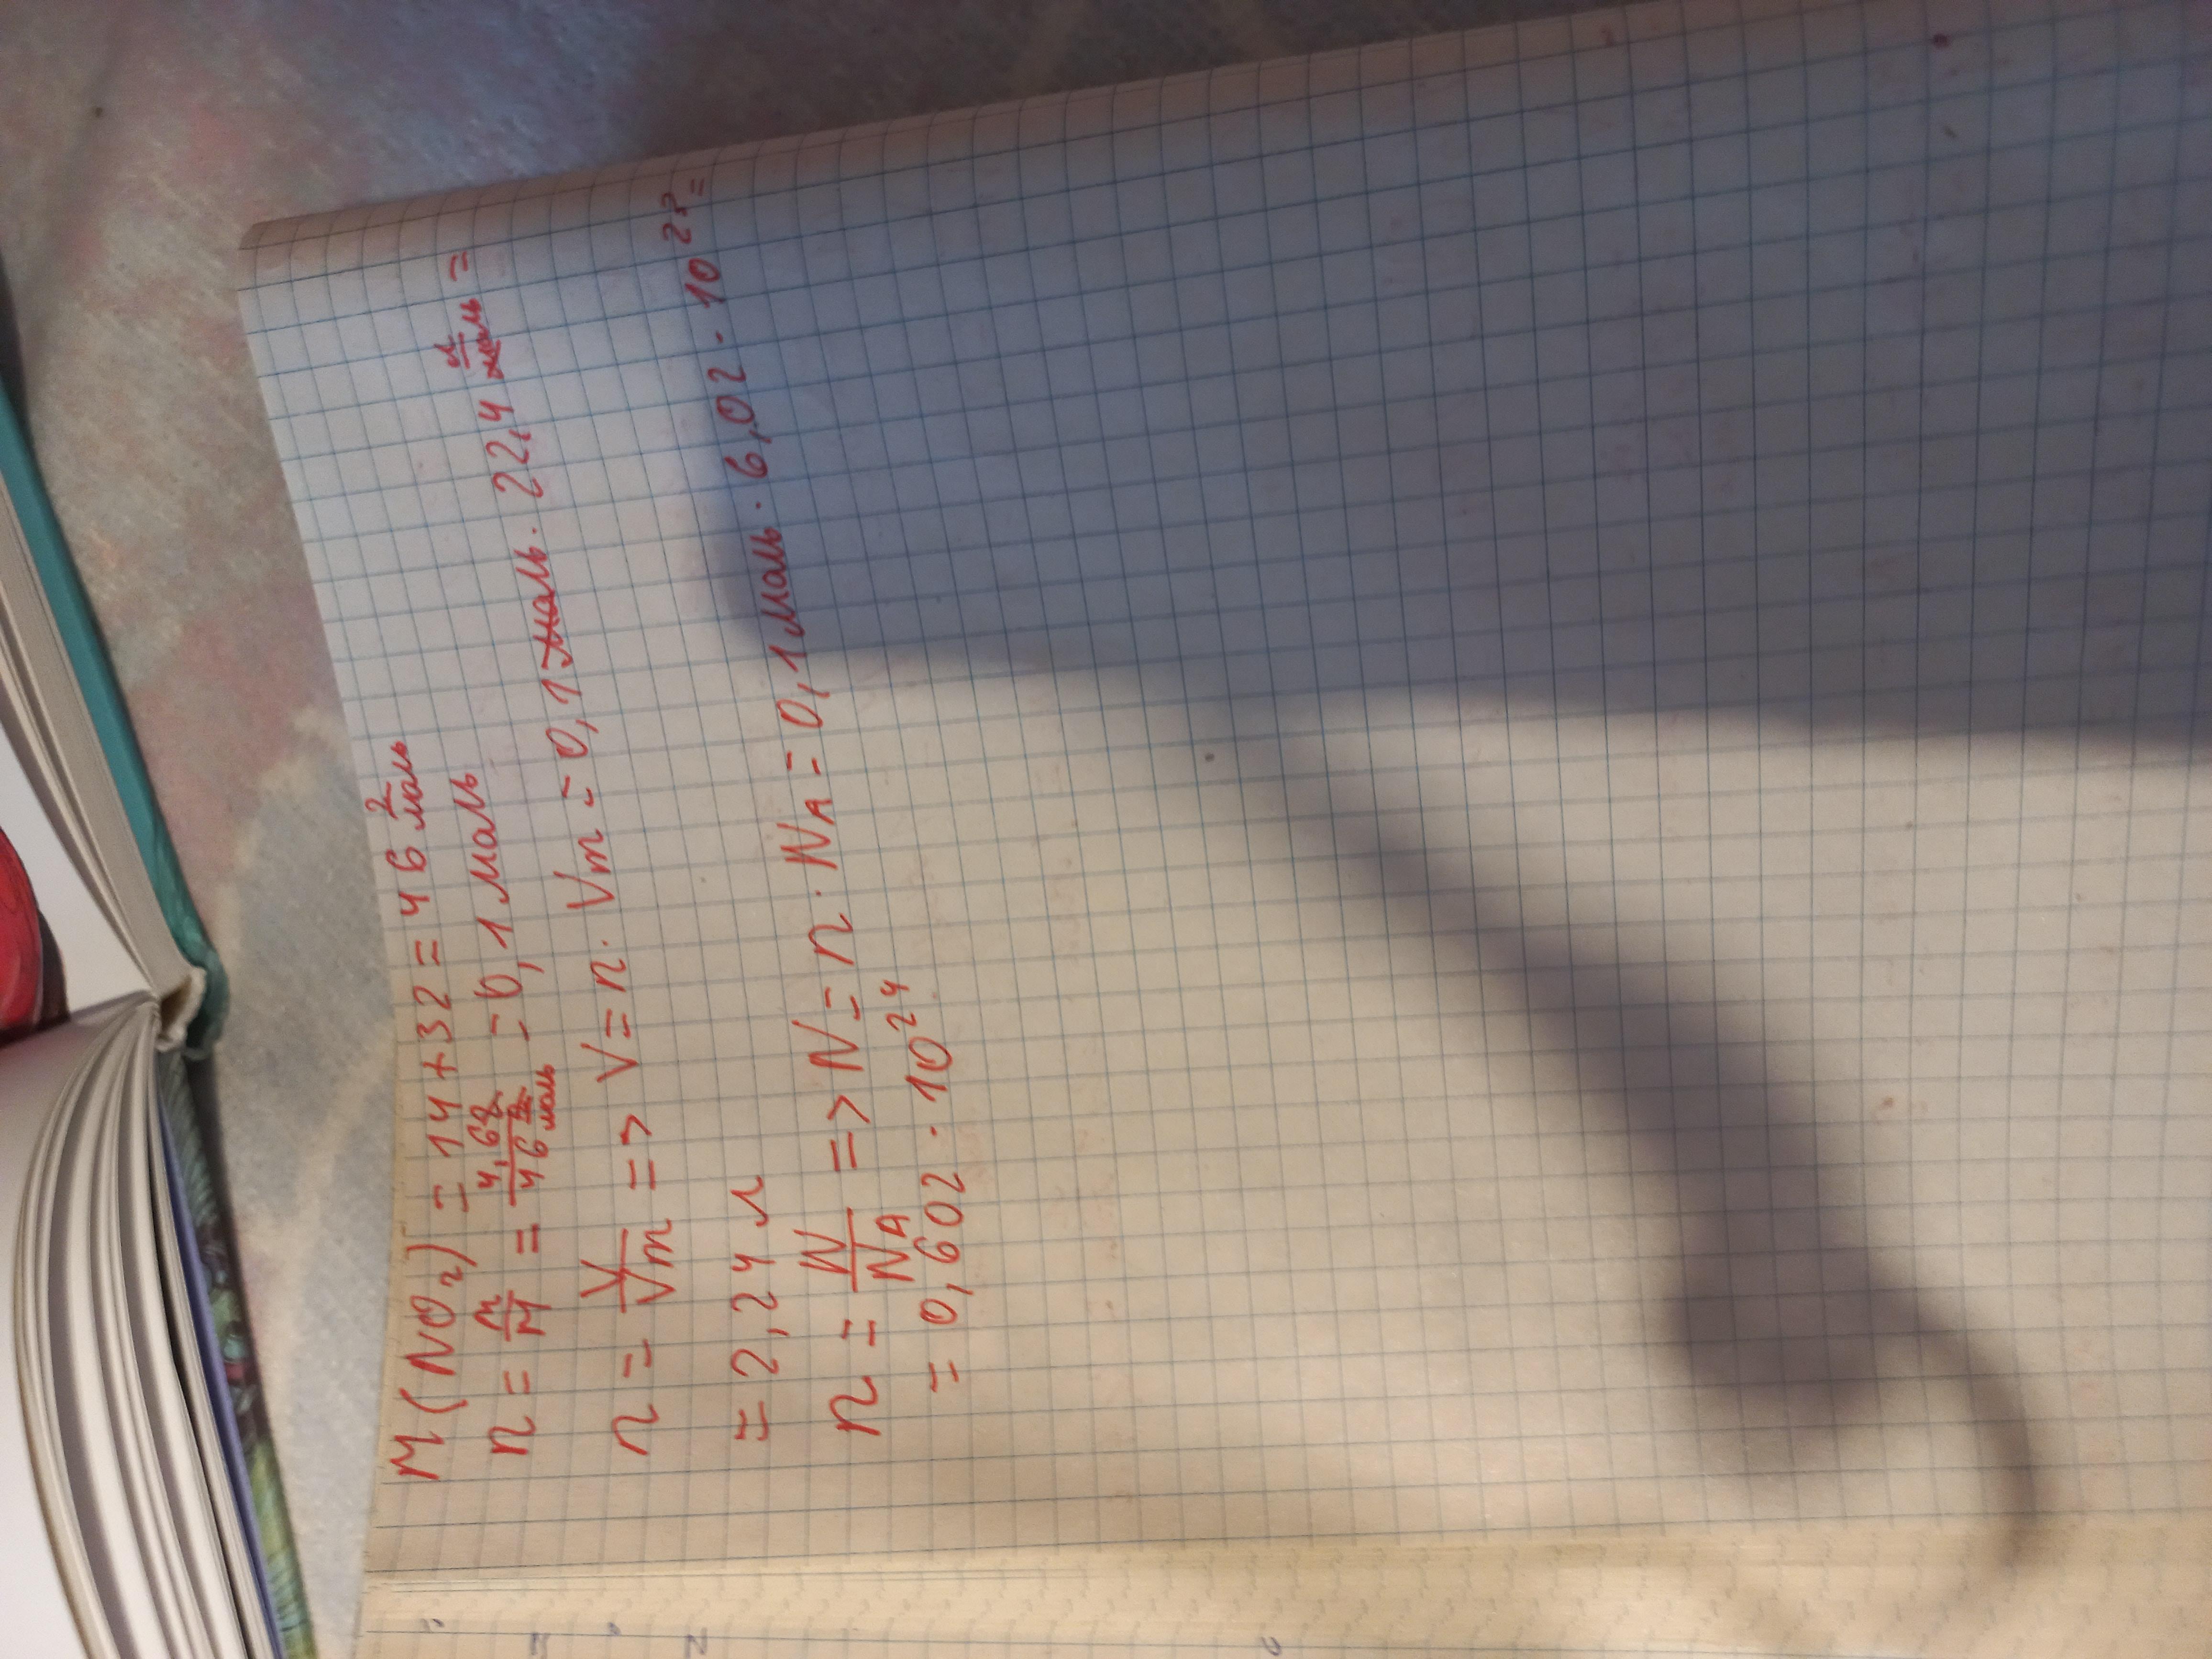 M(NO₂) = 14+32 = 46 г/моль
n = m/M = 4,6г/46 г/моль = 0,1 моль
n = V/Vm => V = n · Vm = 0,1 моль · 22,4 л/моль =
= 2,24 л
n = N/NA => N = n · NA = 0,1 моль · 6,02 · 10²³ =
= 0,602 · 10²⁴